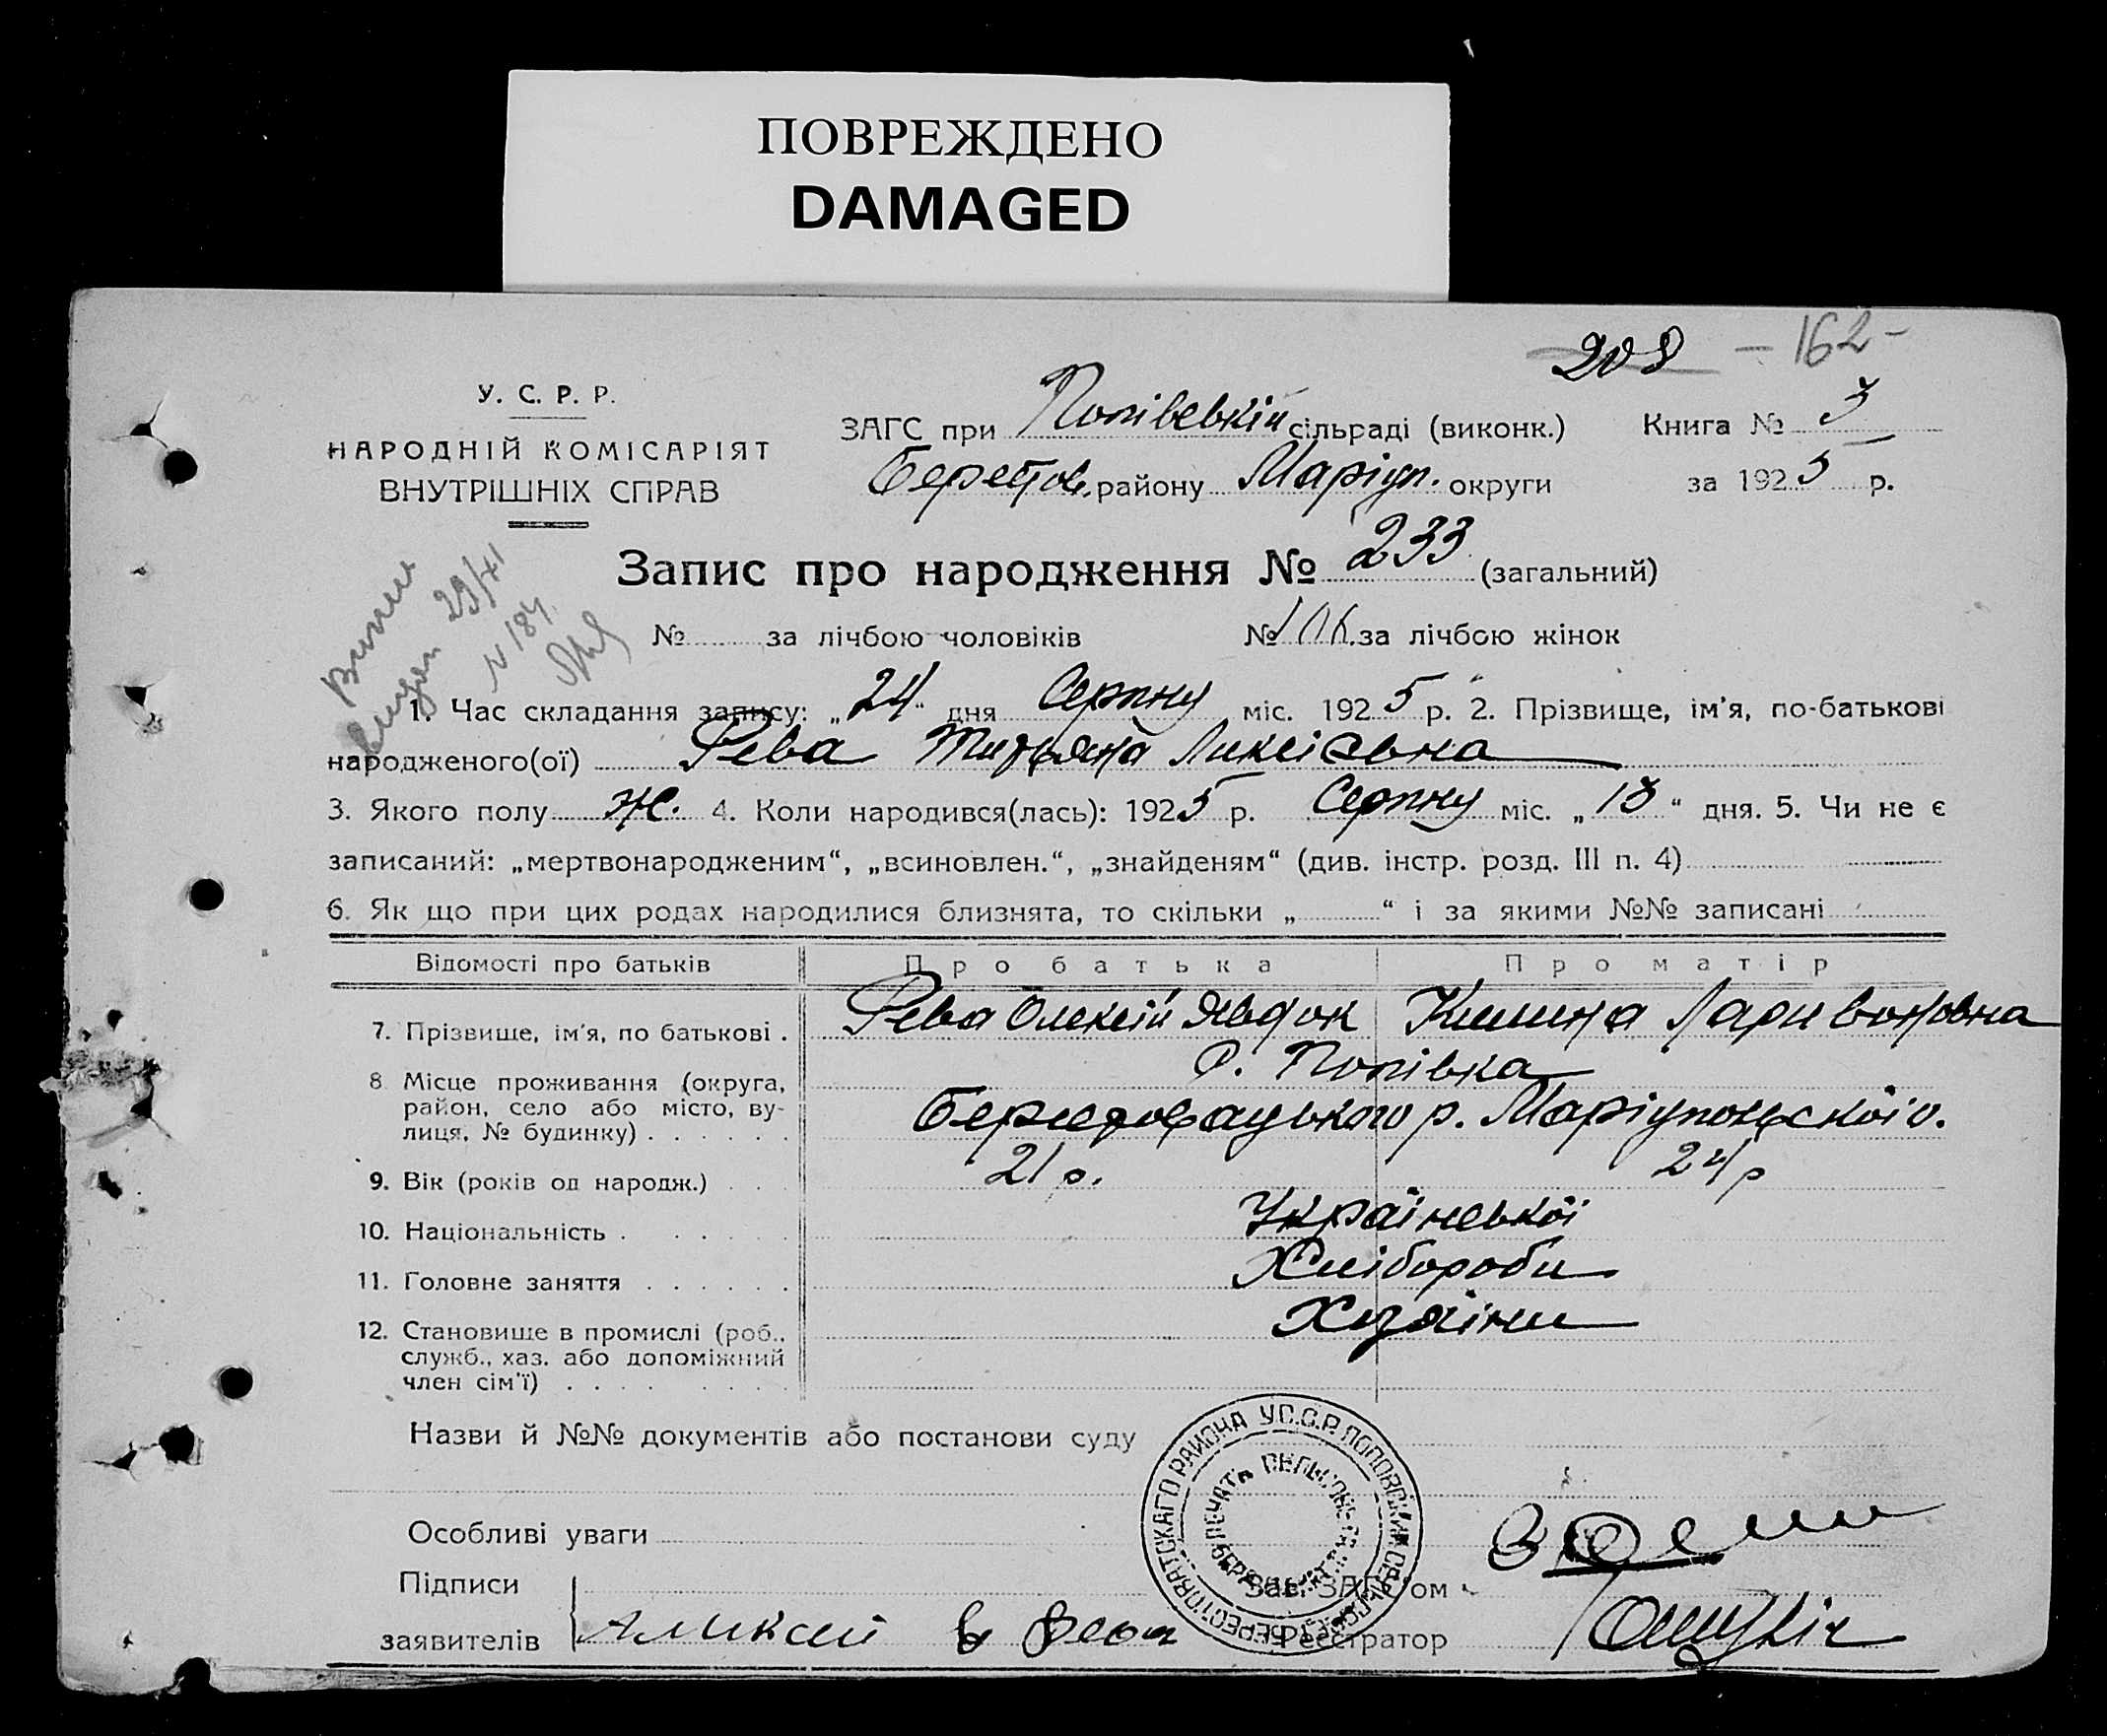 ПОВРЕЖДЕНО
DAMAGED
208 – 162 –
У. С. Р. Р.
НАРОДНІЙ КОМІСАРІЯТ
ВНУТРІШНІХ СПРАВ
ЗАГС при Попівській сільраді (виконк.) Книга № 3
Берестов. району Маріуп. округи за 1925 р.
Запис про народження № 233 (загальний)
№ за лічбою чоловіків № 106 за лічбою жінок
29/41
N 184
1. Час складання запису: „24“ дня Серпну міс. 1925 р. 2. Прізвище, ім'я, по-батькові
народженого(ої) Рева Титьяна Ликсієвна
3. Якого полу ж. 4. Коли народився(лась): 1925 р. Серпну міс. „13“ дня. 5. Чи не є
записаний: „мертвонародженим“, „всиновлен.“, „знайденям“ (див. інстр. розд. III п. 4)
6. Як що при цих родах народилися близнята, то скільки „ “ і за якими №№ записані
Відомості про батьків Про батька Про матір
7. Прізвище, ім'я, по батькові . Рева Олексій Явдок Килина Ларивоновна
8 Місце проживання (округа, район, село або місто, вулиця, № будинку) . . . . . . С. Попівка
Берестовацького р. Маріупольскої о.
9. Вік (років од народж.) . . 21 р. 24 р
10. Національність . . . . . . Української
11. Головне заняття . . . . . . Хлібороби
12. Становище в промислі (роб., служб., хаз. або допоміжний член сім'ї) . . . . . . . Хазяіни
Назви й №№ документів або постанови суду
Особливі уваги
Підписи
заявителів Аликсей Рева
Зав. ЗАГС'ом
Реєстратор
БЕРЕСТОВАТСКАГО РАЙОНА У.С.С.Р. ПОПОВСКИЙ СЕЛЬСОВЕТ
ПЕЧАТЬ СЕЛЬСОВЕТА